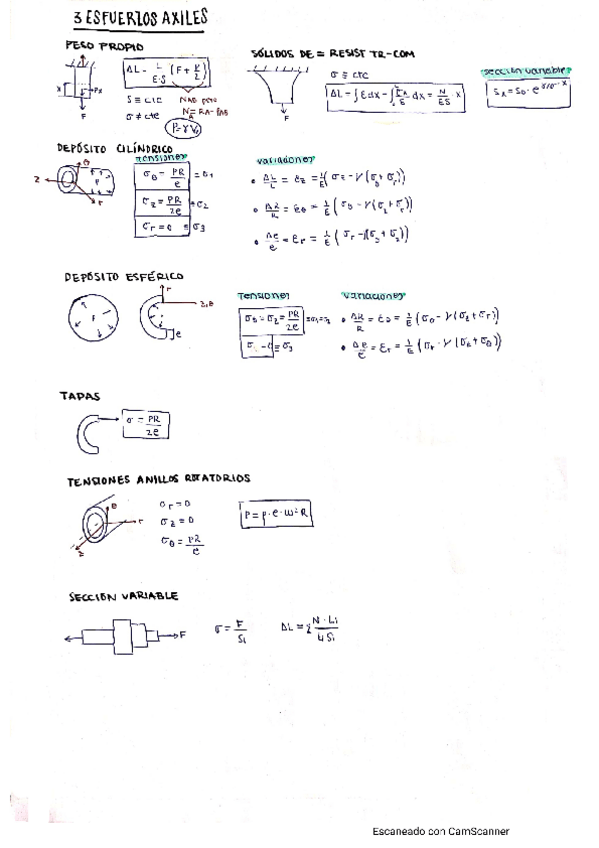 3 ESFUERZOS AXILES
PESO PROPIO
ΔL = L/E·S (F + P/2)
S ≡ cte
σ ≠ cte
P = γV
F
SÓLIDOS DE = RESIST TR-COM
σ ≡ cte
ΔL = ∫ε dx = ∫ σ/E dx = N/ES · x
F
sección variable
DEPÓSITO CILÍNDRICO
Tensiones
σθ = PR/e = σ1
σz = PR/2e = σ2
σr = 0 = σ3
variaciones
• ΔL/L = εz = 1/E (σz - ν(σθ + σr))
• ΔR/R = εθ = 1/E (σθ - ν(σz + σr))
• Δe/e = εr = 1/E (σr - ν(σθ + σz))
DEPÓSITO ESFÉRICO
r
z,θ
e
Tensiones
σθ = σz = PR/2e = σ1 = σ2
= σ3
variaciones
• ΔR/R = εθ = 1/E (σθ - ν(σz + σr))
• Δe/e = εr = 1/E (σr - ν(σz + σθ))
TAPAS
σ = PR/2e
TENSIONES ANILLOS ROTATORIOS
σr = 0
σz = 0
σθ = PR/e
P = ρ·e·ω²·R
SECCIÓN VARIABLE
F
σ = F/Si
ΔL = Σ N·Li/
Escaneado con CamScanner